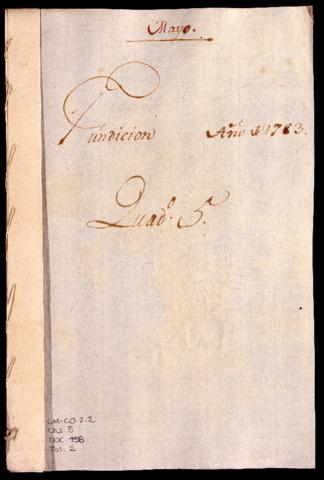 Mayo.
Fundicion Año d 1783.
Quad.º 5.
CM-CO 2.2
CAJ. 5
DOC. 158
Fol. 2